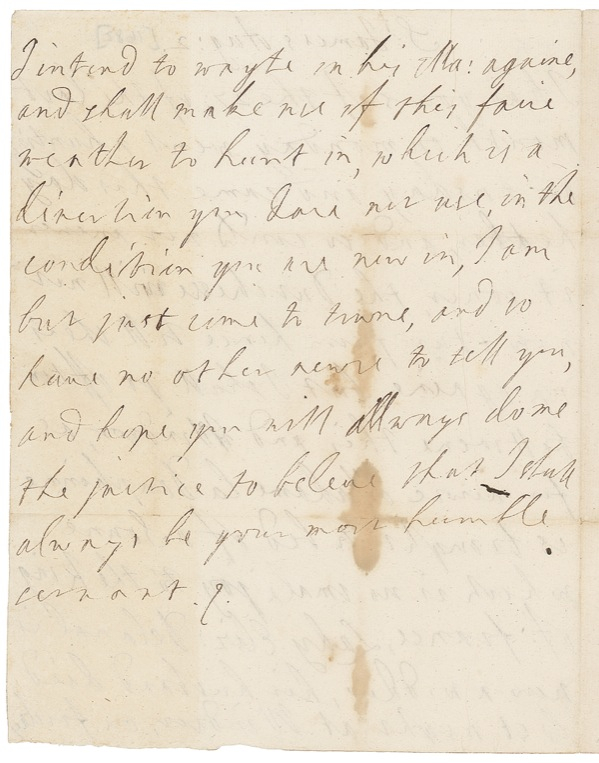 I intend to wayte on his Ma: againe,
and shall make use of this faire
weather to hunt in, which is a
divertion you dare not use, in the
condition you are now in, I am
but just come to towne, and so
have no other newse to tell you,
and hope you will allways do me
the justice to beleve that I shall
always be your most humble
servant.